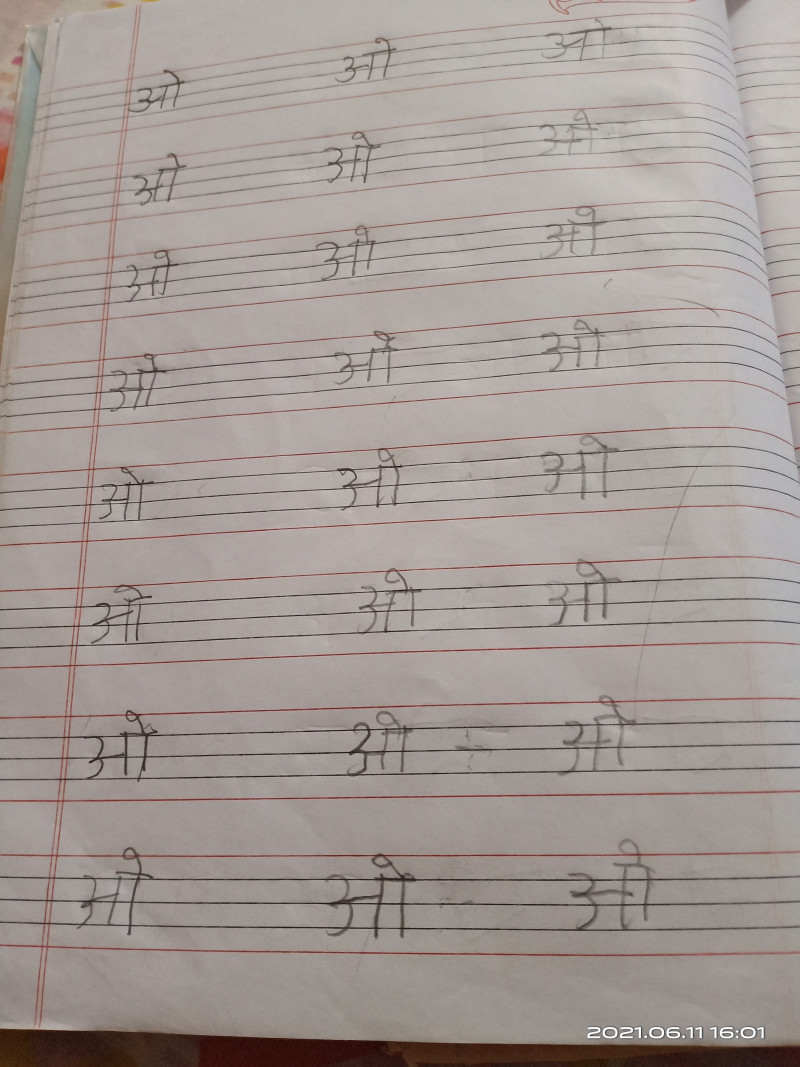 ओ ओ ओ
ओ ओ ओ
ओ ओ ओ
ओ ओ ओ
ओ ओ ओ
ओ ओ ओ
ओ ओ ओ
ओ ओ ओ
2021.06.11 16:01